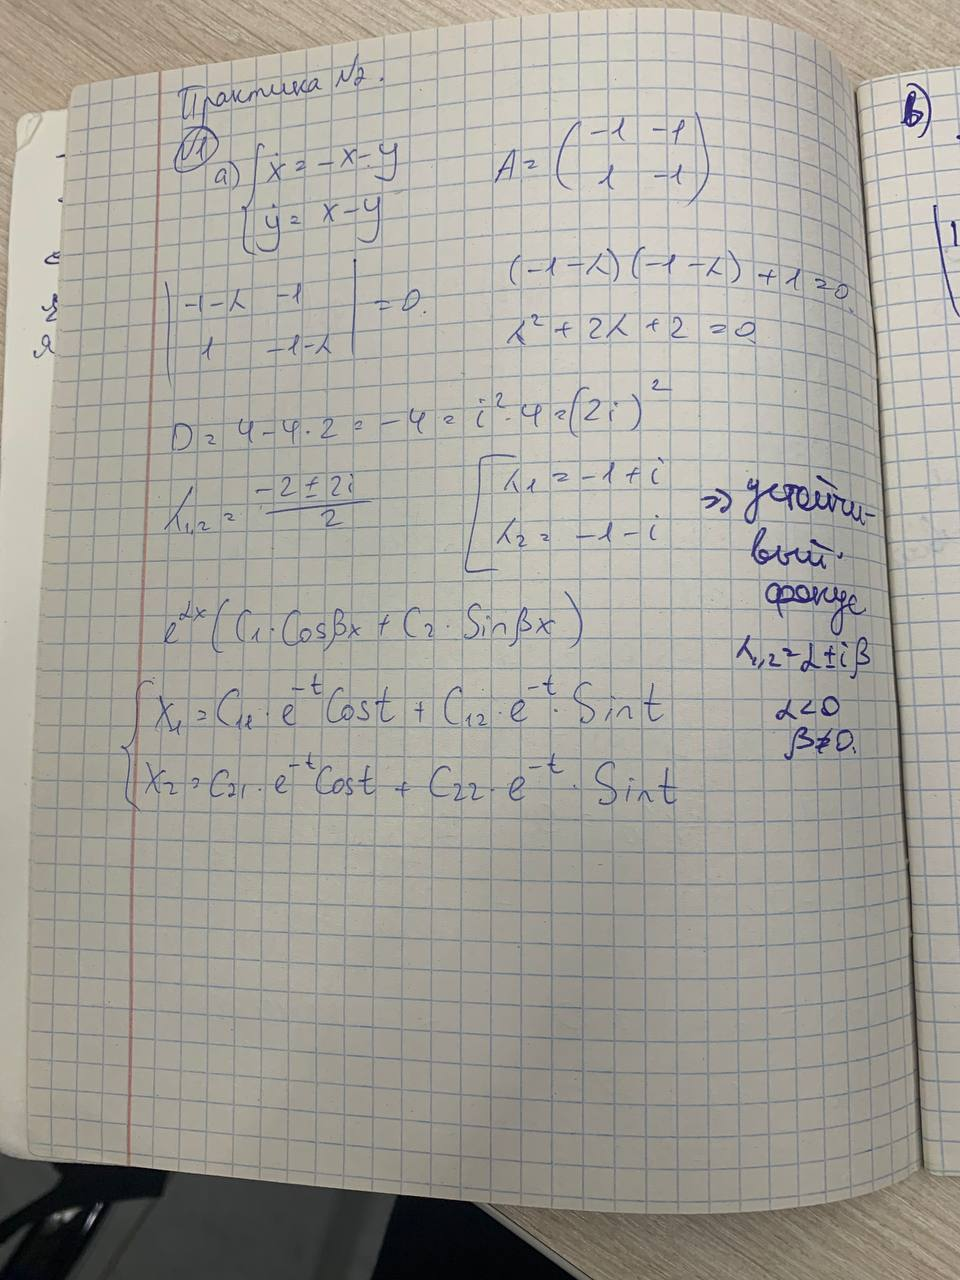 Практика №2.
№1
а) { ẋ = -x-y
ẏ = x-y
A = ( -1 -1
1 -1 )
| -1-λ -1
1 -1-λ | = 0.
(-1-λ)(-1-λ) + 1 = 0.
λ² + 2λ + 2 = 0
D = 4-4·2 = -4 = i²·4 = (2i)²
λ1,2 = (-2 ± 2i)/2
[ λ1 = -1+i
λ2 = -1-i
=> устойчи-
вый
фокус
λ1,2 = α±iβ
α<0
β≠0.
e^αx (C1·Cosβx + C2·Sinβx)
{ x1 = C11·e^-t Cost + C12·e^-t·Sint
x2 = C21·e^-t Cost + C22·e^-t·Sint
в)
я